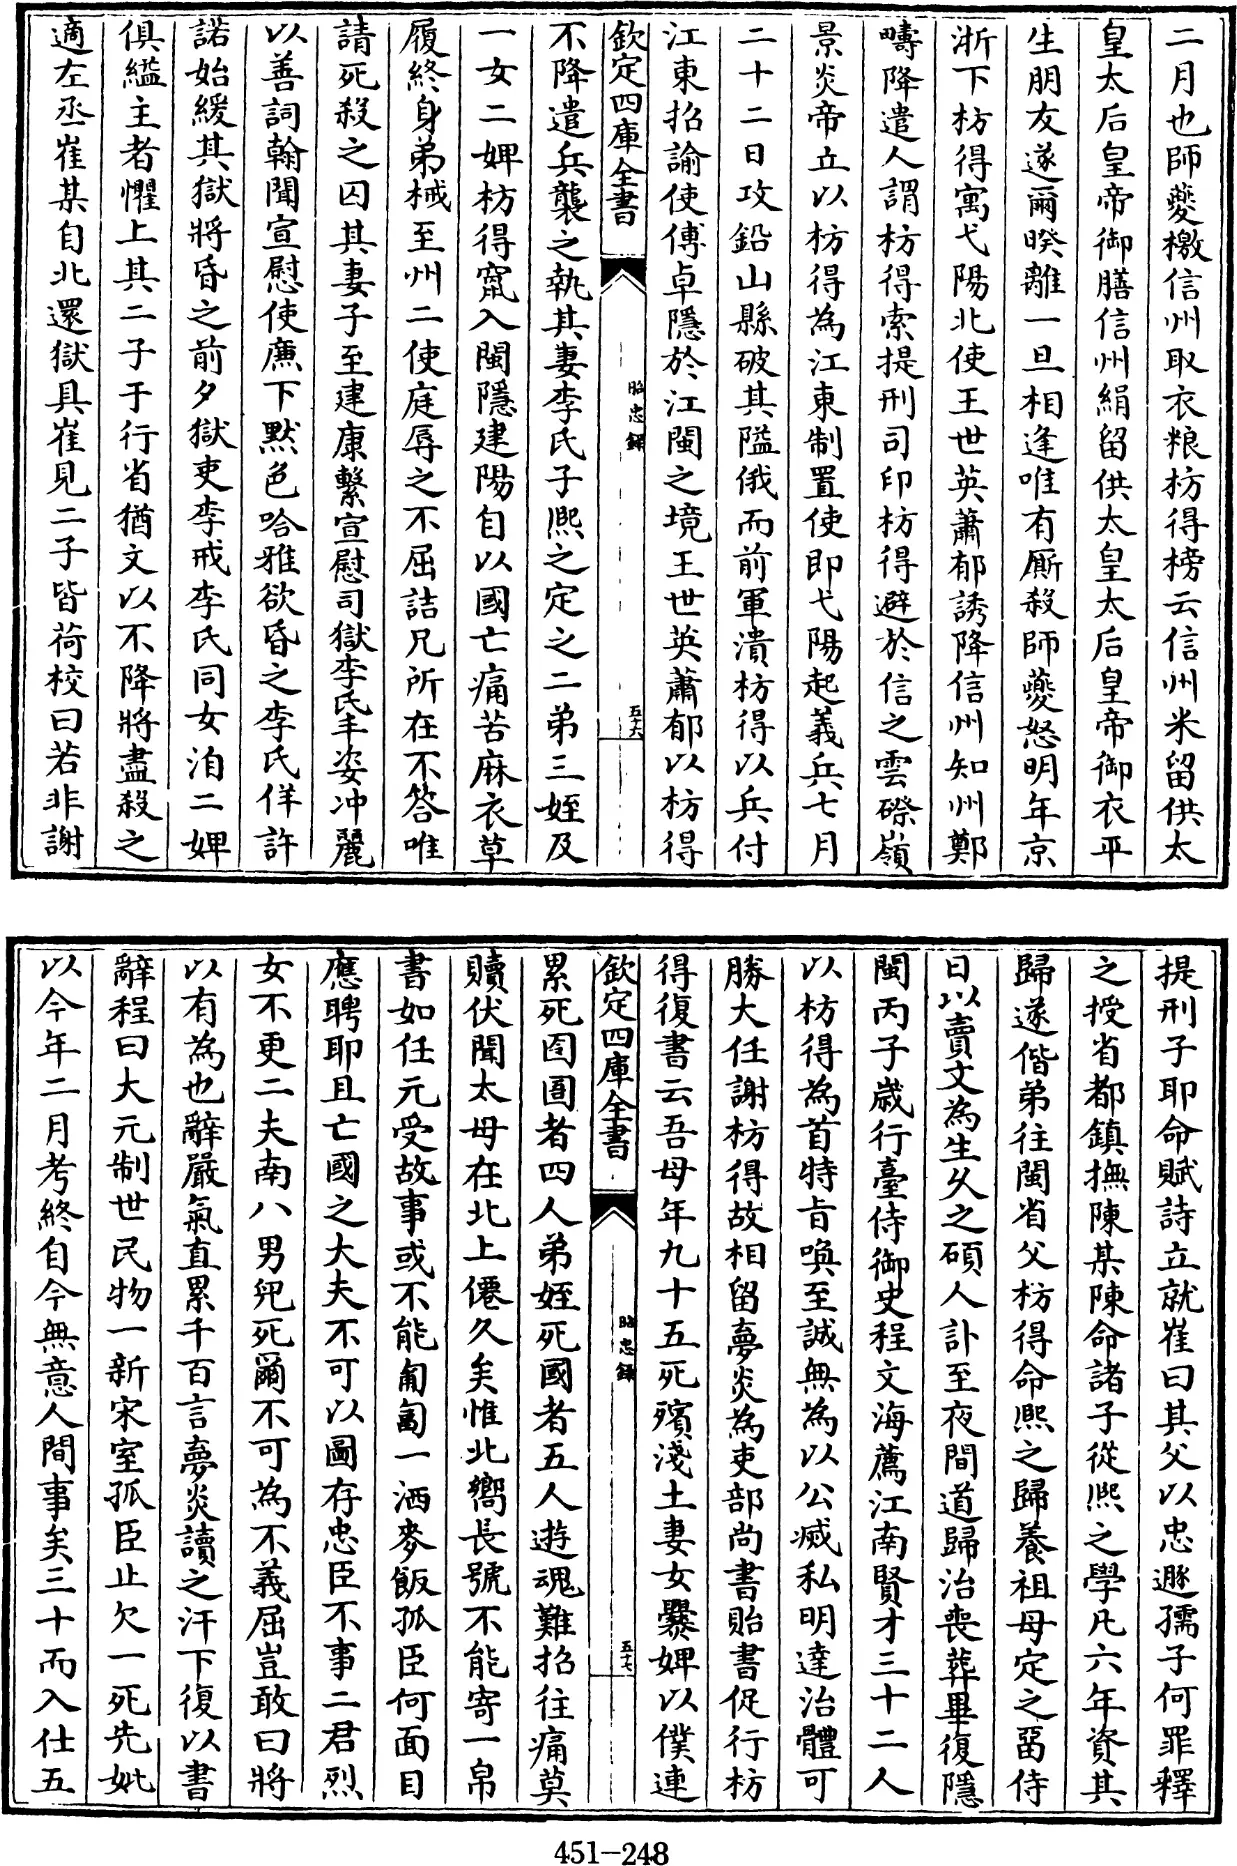 二月也師夔檄信州取衣粮枋得榜云信州米留供太
皇太后皇帝御膳信州絹留供太皇太后皇帝御衣平
生朋友遂爾暌離一旦相逢唯有厮殺師夔怒明年京
淅下枋得寓弋陽北使王世英蕭郁誘降信州知州鄭
疇降遣人謂枋得索提刑司印枋得避於信之雲磜嶺
景炎帝立以枋得為江東制置使即弋陽起義兵七月
二十二日攻鉛山縣破其隘俄而前軍潰枋得以兵付
江東招諭使傅卓隱於江閩之境王世英蕭郁以枋得
欽定四庫全書
昭忠錄
五十六
不降遣兵襲之執其妻李氏子熙之定之二弟三姪及
一女二婢枋得竄入閩隱建陽自以國亡痛苦麻衣草
履終身弟械至州二使庭辱之不屈詰兄所在不答唯
請死殺之囚其妻子至建康繫宣慰司獄李氏丰姿冲麗
以善詞翰聞宣慰使廉下默色哈雅欲昏之李氏佯許
諾始緩其獄將昏之前夕獄吏李戒李氏同女洎二婢
俱縊主者懼上其二子于行省猶文以不降將盡殺之
適左丞崔某自北還獄具崔見二子皆荷校曰若非謝
提刑子耶命賦詩立就崔曰其父以忠遯孺子何罪釋
之授省都鎮撫陳某陳命諸子從熙之學凡六年資其
歸遂偕弟往閩省父枋得命熙之歸養祖母定之留侍
日以賣文為生久之碩人訃至夜間道歸治喪葬畢復隱
閩丙子歲行臺侍御史程文海薦江南賢才三十二人
以枋得為首特旨喚至誠無為以公滅私明達治體可
勝大任謝枋得故相留夢炎為吏部尚書貽書促行枋
得復書云吾母年九十五死殯淺土妻女爨婢以僕連
欽定四庫全書
昭忠錄
五十七
累死囹圄者四人弟姪死國者五人遊魂難招往痛莫
贖伏聞太母在北上僊久矣惟北嚮長號不能寄一帛
書如任元受故事或不能匍匐一洒麥飯孤臣何面目
應聘耶且亡國之大夫不可以圖存忠臣不事二君烈
女不更二夫南八男兒死爾不可為不義屈豈敢曰將
以有為也辭嚴氣直累千百言夢炎讀之汗下復以書
辭程曰大元制世民物一新宋室孤臣止欠一死先妣
以今年二月考終自今無意人間事矣三十而入仕五
451-248